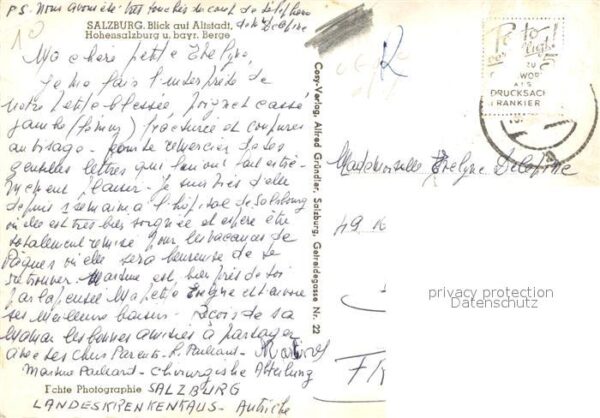 P.S. Nous avons été très touchés du coup de téléphone
de Mr Delepine
SALZBURG. Blick auf Altstadt,
Hohensalzburg u. bayr. Berge
Ma chère petite Evelyne,
Je me fais l'interprète de
notre petite blessée, poignet cassé
jambe (péroné) fracturée et coupures
au visage - pour te remercier de tes
gentilles lettres qui lui ont fait extrê-
mement plaisir. Je suis près d'elle
depuis 1 semaine à l'hôpital de Salzbourg
où elle est très bien soignée et espère être
totalement remise pour les vacances de
Pâques où elle sera heureuse de te
retrouver. Martine est bien près de toi
par la pensée Ma petite Evelyne et t'envoie
ses meilleurs baisers. Reçois de sa
Maman les bonnes amitiés à partager
avec tes chers Parents. P. Paillard
Martine Paillard - Chirurgische Abteilung
Echte Photographie SALZBURG
LANDESKRENKENHAUS - Autriche
Cosy-Verlag, Alfred Gründler, Salzburg, Getreidegasse Nr. 22
R
ZU
WOR
ALS
DRUCKSACH
FRANKIER
Mademoiselle Evelyne Delepine
49
privacy protection
Datenschutz
FR